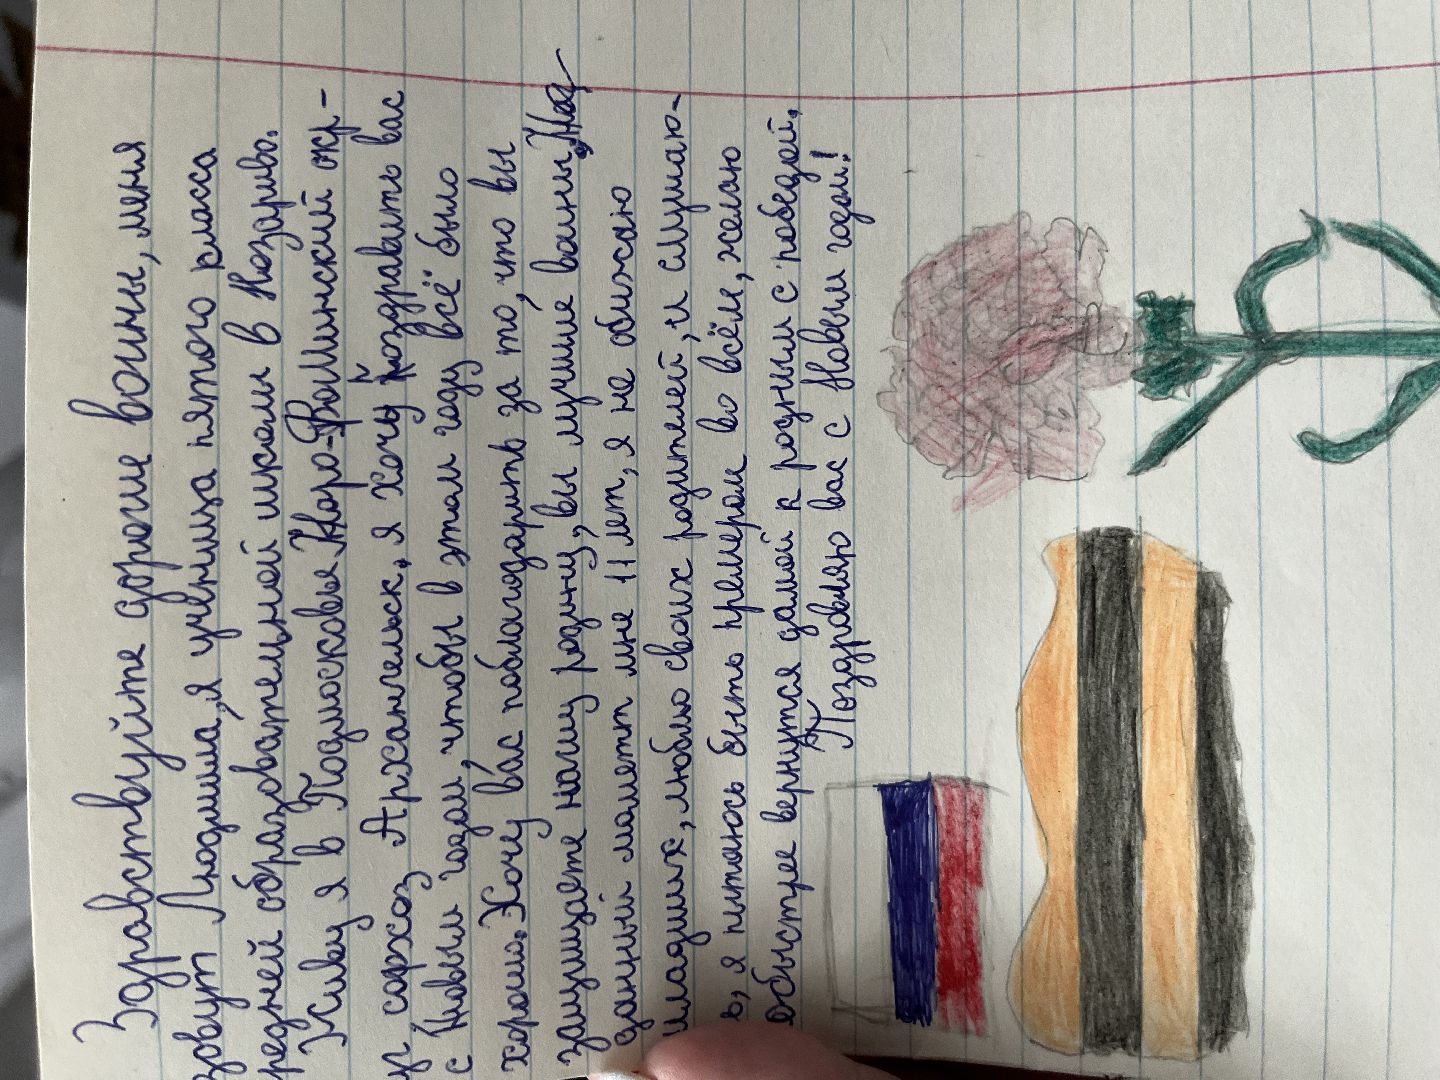 Здравствуйте дорогие воины, меня
зовут Людмила, я ученица пятого класса
редней образовательной школы в Назарьево.
Живу я в Подмосковье Наро-Фоминский окр-
уг совхоз Архангельск, я хочу поздравить вас
с Новым годом, чтобы в этом году всё было
хорошо. Хочу вас поблагодарить за то, что вы
защищаете нашу родину, вы лучшие воины. На
данный момент мне 11 лет, я не обижаю
младших, люблю своих родителей, и слушаю-
ь, я пытаюсь быть премером во всём, желаю
обыстрее вернутся домой к родным с победой,
Поздравляю вас с Новым годом!